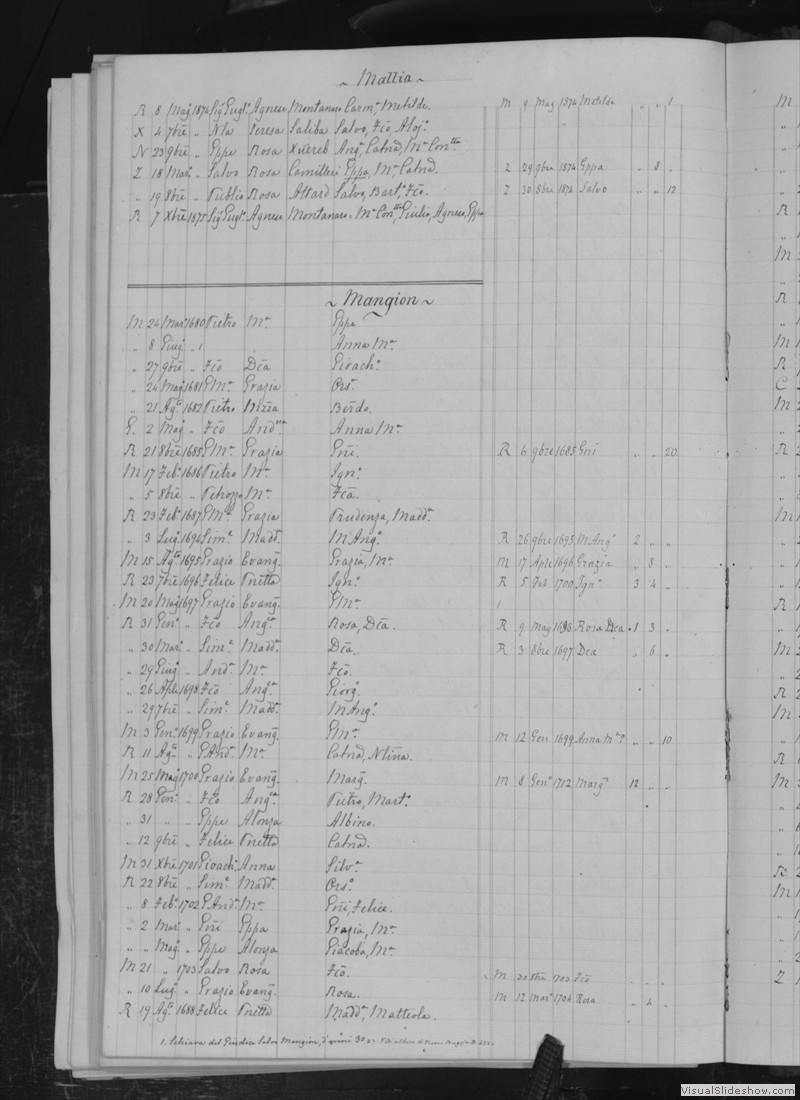 ~ Mallia ~
R 8 Mag° 1874 Sig Eugl° Agnese Montanaro Carmᵃ, Metilde. M 9 Mag 1874 Metilda „ „ 1
X 4 7bre „ Nla Teresa Saliba Salvo, Fcō, Aloj°
N 23 9bre „ Eppe Rosa Xuereb Ang°, Catnā, Mᵃ Conᵗᵗᵃ
Z 18 Mar° „ Salvo Rosa Camilleri Eppa, Mᵃ Catnā. Z 29 9bre 1874 Eppa „ 8 „
„ 19 8bre „ Publio Rosa Attard Salvo, Bart°, Fcō. Z 30 8bre 1874 Salvo „ „ 12
R 7 Xbre 1875 Sig Eugl° Agnese Montanaro Mᵃ Conᵗᵗᵃ, Giulio, Agnese, Eppa
~ Mangion ~
M 24 Mar° 1680 Pietro Mᵃ Eppa
„ 8 Giug° „ 1 „ Anna Mᵃ
„ 27 9bre „ Fcō Dcā Gioach°
„ 24 Mag° 1681 GMᵃ Grazia Ors°
„ 21 Ag° 1682 Pietro Berdo.
G. 2 Mag° „ Fcō Andʳᵉᵃ Anna Mᵃ
R 21 8bre 1685 GMᵃ Grazia Gnī. R 6 9bre 1685 Gni „ „ 20
M 17 Feb° 1686 Pietro Mᵃ Ign°
„ 5 8bre „ Petrozzo Mᵃ Fcā.
R 23 Feb° 1687 GMᵃ Grazia Prudenza, Maddᵃ
„ 3 Lug° 1694 Simᵉ Maddᵃ M Ang° R 26 9bre 1695 M Ang° 2 „ „
M 15 Ag° 1695 Grazio Evang. Grazia, Mᵃ M 17 Aple 1696 Grazia „ 8 „
R 23 7bre 1696 Felice Pnetta Ign° R 5 Feb 1700 Ign° 3 4 „
M 20 Mag° 1697 Grazio Evang. GMᵃ
R 31 Gen° „ Fcō Angᶜᵃ Rosa, Dcā. R 9 Mag 1698 Rosa Dca 1 3 „
„ 30 Mar° „ Simᵉ Maddᵃ Dcā. R 3 8bre 1697 Dca „ 6 „
„ 29 Giug° „ Andᵃ Mᵃ Fcō.
„ 26 Aple 1698 Fcō Angᶜᵃ Giorg°
„ 29 7bre „ Simᵉ Maddᵃ M Ang°
M 3 Gen° 1699 Grazio Evang. GMᵃ M 12 Gen 1699 Anna Mᵃ? „ „ 10
R 11 Ag° „ GAndᵃ Mᵃ Catnā, Nlīna.
M 25 Mag° 1700 Grazio Evang. Marg. M 8 Gen° 1712 Margᵃ 12 „ „
R 28 Gen° „ Fcō Angᶜᵃ Pietro, Mart°
„ 31 „ „ Eppe Alonza Albino.
„ 12 9bre „ Felice Pnetta Catnā.
M 31 Xbre 1701 Gioach° Anna Silvᵃ
R 22 8bre „ Simᵉ Maddᵃ Ors°
„ 8 Feb° 1702 GAndᵃ Mᵃ Gnī, Felice.
„ 2 Mar° „ Gnī Eppa Grazia, Mᵃ
„ „ Mag° „ Eppe Alonza Giacoba, Mᵃ
M 21 „ 1703 Salvo Rosa Fcō. M 30 8bre 1703 Fcō „ „ „
„ 10 Lug° „ Grazio Evang. Rosa. M 12 Mar° 1704 Rosa „ 4 „
R 19 Ag° 1688 Felice Pnetta Maddᵃ, Matteola.
1. Schiava del Giudice Salvo Mangion, d'anni 30
VisualSlideshow.com